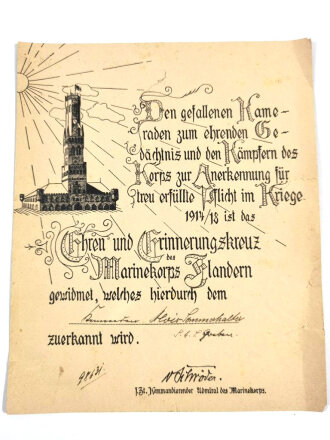 Den gefallenen Kame-
raden zum ehrenden Ge-
dächtnis und den Kämpfern des
Korps zur Anerkennung für
treu erfüllte Pflicht im Kriege
1914/18 ist das
Ehren und Erinnerungskreuz
des
Marinekorps Flandern
gewidmet, welches hierdurch dem
Alois
zuerkannt wird.
v. Schröder
z. Zt. Kommandierender Admiral des Marinekorps.